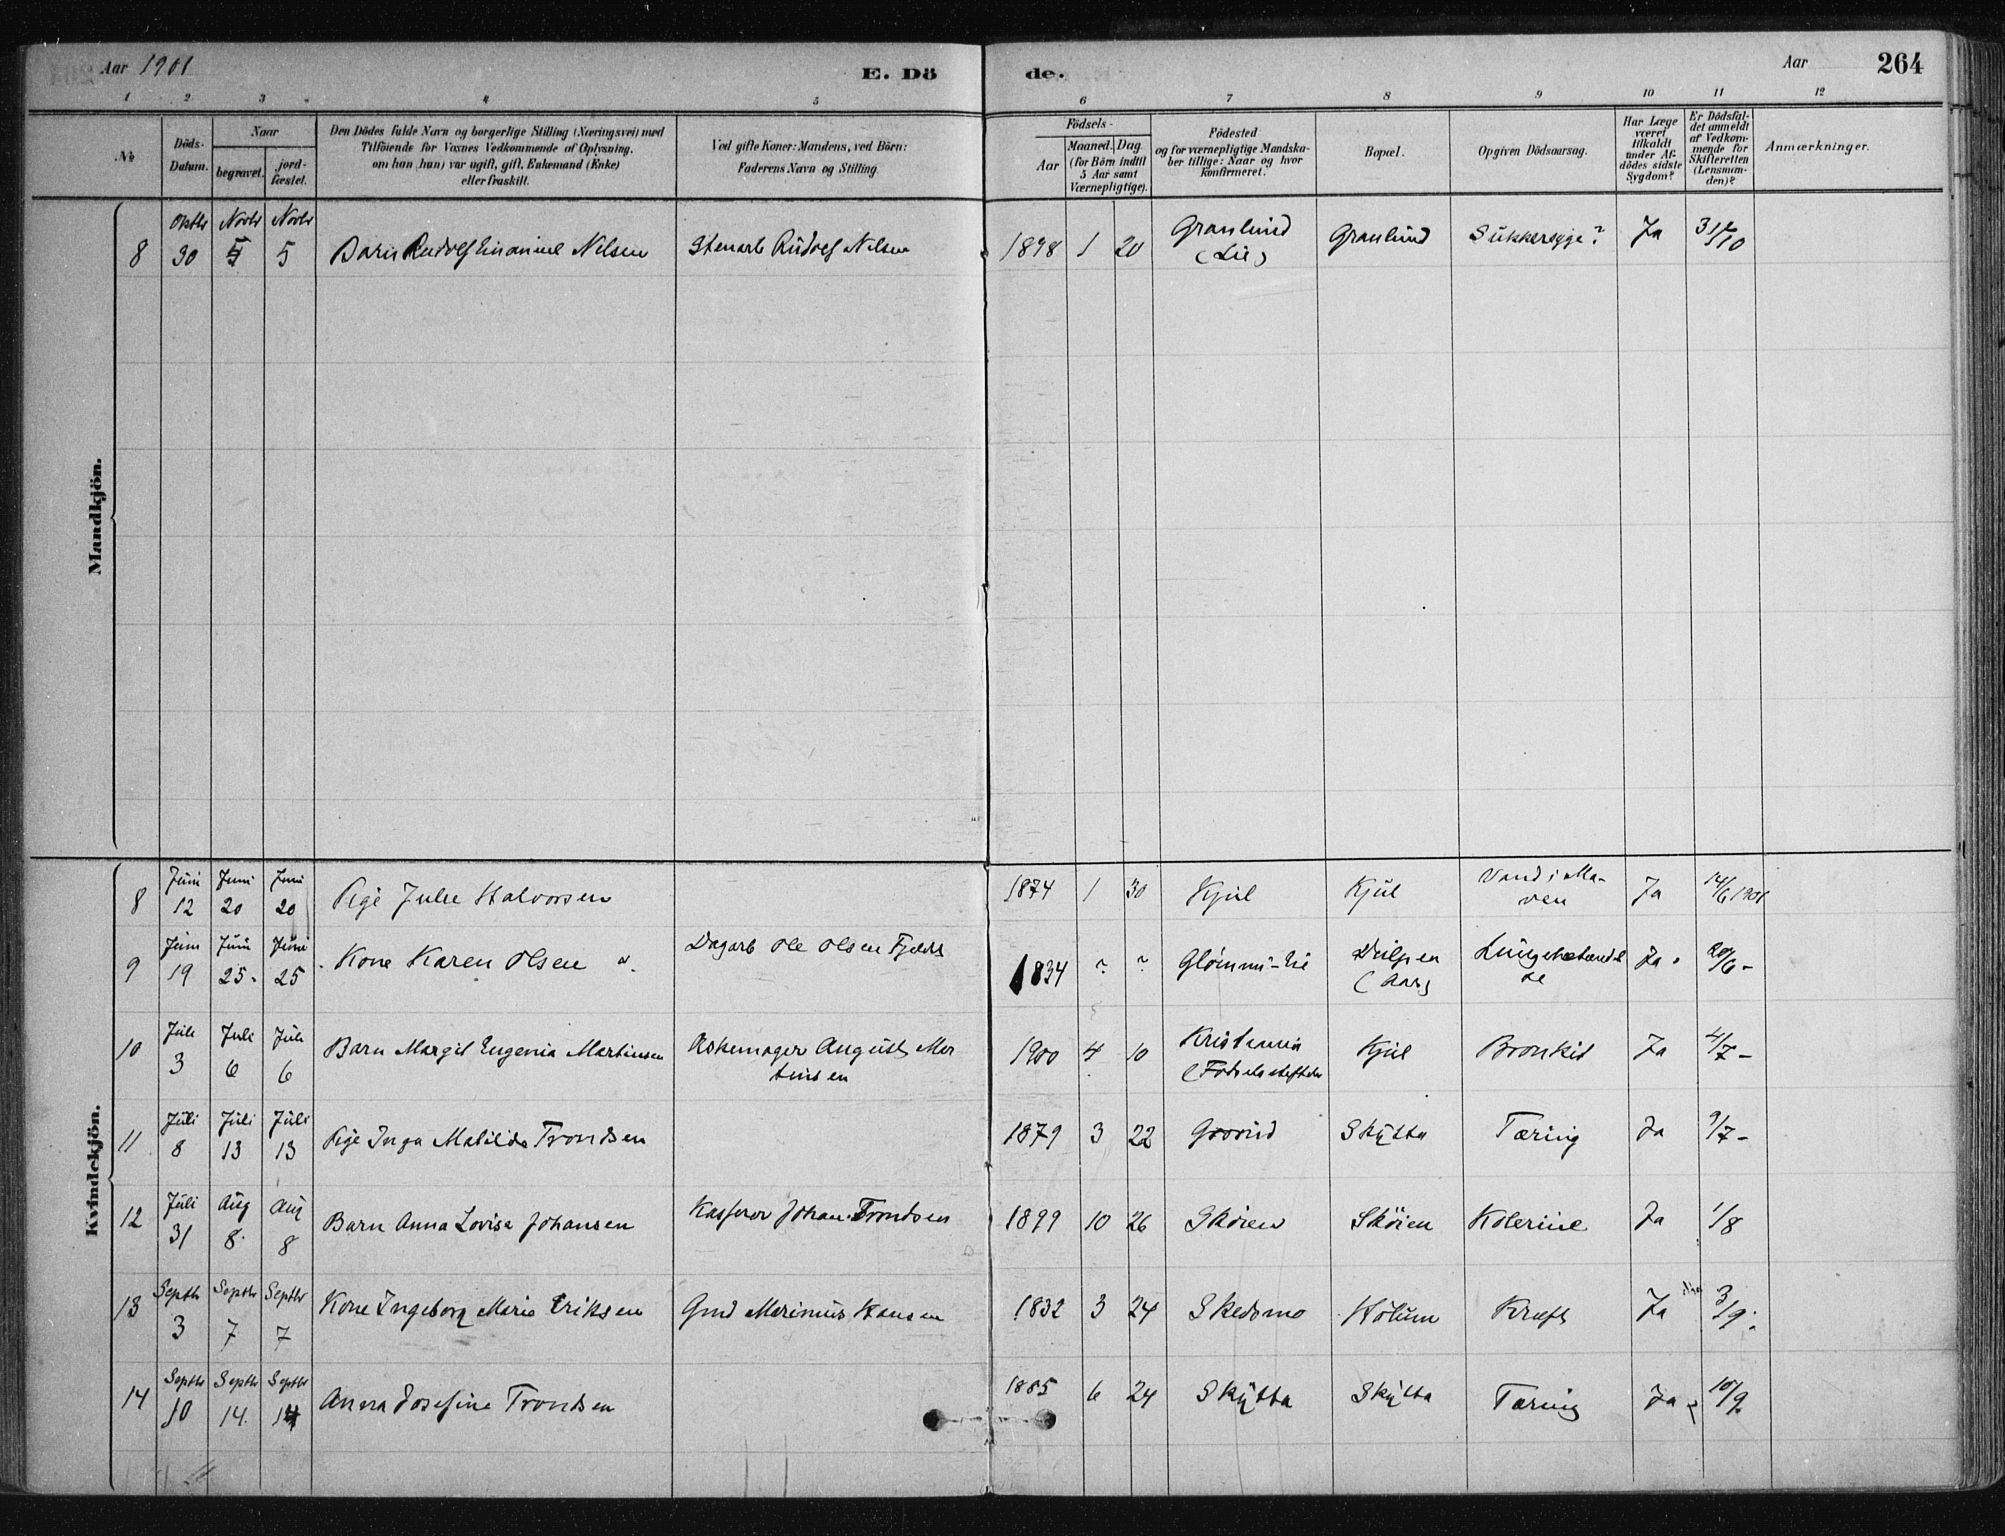 Aar 1901
E. Dö
de.
Aar
264
1 2 3 4 5 6 7 8 9 10 11 12
No
Döds-Datum.
Naar
begravet.
jord-fæstet.
Den Dödes fulde Navn og borgerlige Stilling (Næringsvei) med
Tilföiende for Voxnes Vedkommende af Oplysning,
om han (hun) var ugift, gift, Enkemand (Enke)
eller fraskilt.
Ved gifte Koner: Mandens, ved Börn:
Faderens Navn og Stilling.
Födsels-
Aar
Maaned. Dag.
(for Börn indtil
5 Aar samt
Værnepligtige).
Födested
og for værnepligtige Mandska-
ber tillige: Naar og hvor
konfirmeret.
Bopæl.
Opgiven Dödsaarsag.
Har Læge
været
tilkaldt
under Af-
dödes sidste
Sygdom?
Er Dödsfal-
det anmeldt
af Vedkom-
mende for
Skifteretten
(Lensman-
den)?
Anmærkninger.
Mandkjön.
Oktbr Novbr Novbr
8 30 5 5 Barn Rudolf Emanuel Nilsen Stenarb Rudolf Nilsen 1898 1 20 Granlund (Lie) Granlund Sukkersyge? Ja 31/10
Kvindekjön.
Juni Juni Juni
8 12 20 20 Pige Julie Halvorsen 1874 1 30 Kjul Kjul Vand i Ma-
ven Ja 14/6 1901
Juni Juni Juni
9 19 25 25 Kone Karen Olsen Dagarb Ole Olsen 1834 ? ? (Aas) Ja 20/6 -
Juli Juli Juli
10 3 6 6 Barn Margit Eugenia Martinsen August Mar
tinsen 1900 4 10 Kristiania
(Fødselsstiftelsen Kjul Bronkit Ja 4/7 -
Juli Juli Juli
11 8 13 13 Pige Inga Matilde Trondsen 1879 3 22 Grorud Skÿtta Tæring Ja 9/7 -
Juli Aug Aug
12 31 8 8 Barn Anna Lovise Johansen Johan Trondsen 1899 10 26 Skøien Skøien Kolerine Ja 1/8
Septbr Septbr Septbr
13 3 7 7 Kone Ingeborg Marie Eriksen Gmd Marinius Hansen 1832 3 24 Skedsmo Holum Kræft Ja 3/9.
Septbr Septbr Septbr
14 10 14 14 Anna Josefine Trondsen 1885 6 24 Skÿtta Skÿtta Tæring Ja 10/9